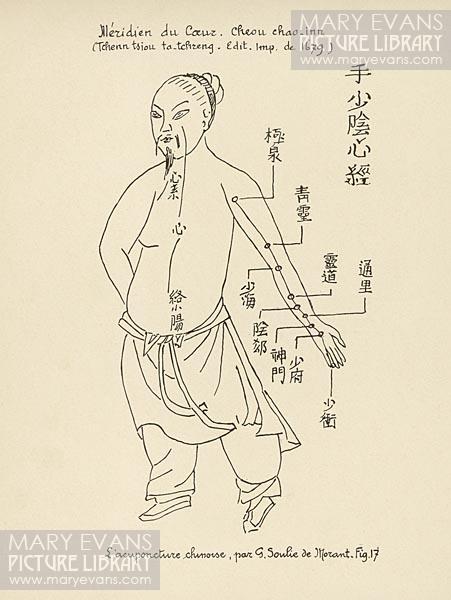 MARY EVANS
PICTURE LIBRARY
www.maryevans.com
Méridien du Cœur. Cheou chao-inn
(Tchenn tsiou ta-tchreng. Edit. Imp. de 1679.)
手少陰心經
極泉
青靈
少海
靈道
通里
陰郄
神門
少府
少衝
心系
心
絡小腸
MARY EVANS
L'acuponcture chinoise, par G. Soulié de Morant. Fig. 17
PICTURE LIBRARY
www.maryevans.com